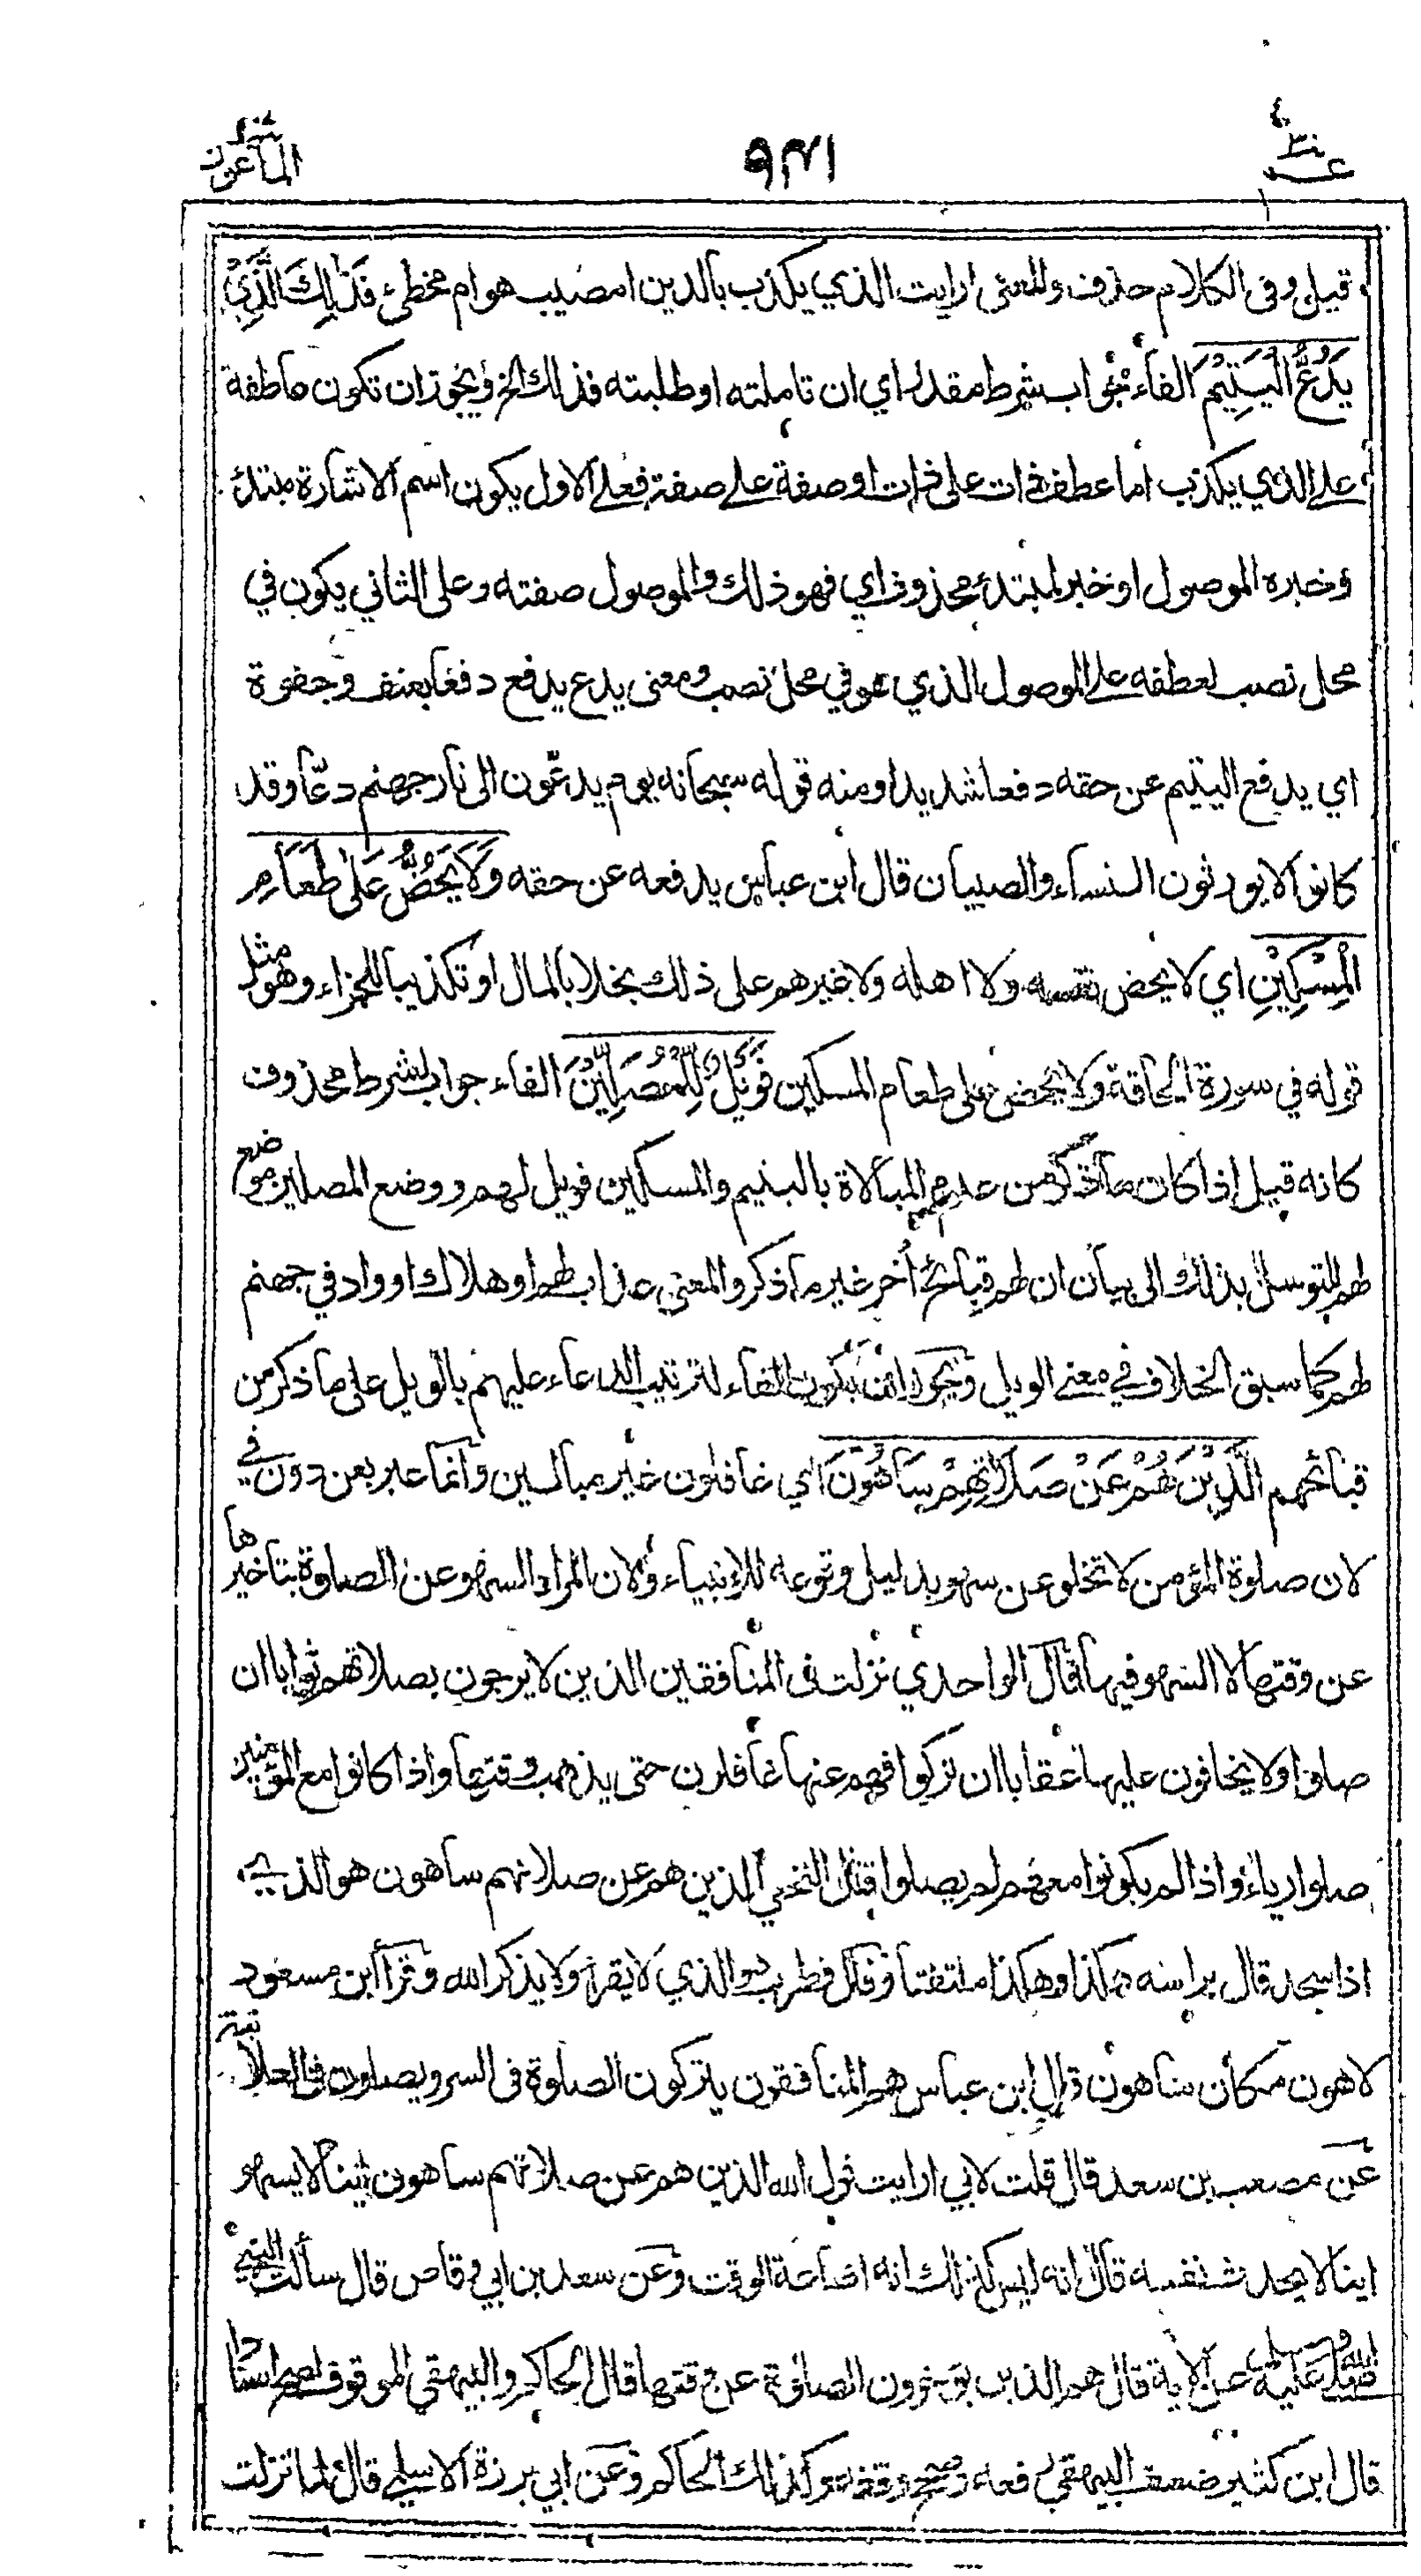 عم ٣٠
٩٣١
الماعون
قيل وفى الكلام حذف والمعنى ارايت الذي يكذب بالدين امصيب هو ام مخطئ فَذٰلِكَ الَّذِيْ
يَدُعُّ الْيَتِيْمَ الفاء جواب شرط مقدر اي ان تاملته او طلبته فذلك الخ ويجوز ان تكون عاطفة
على الذي يكذب اما عطف ذات على ذات او صفة على صفة فعلى الاول يكون اسم الاشارة مبتدئ
وخبره الموصول او خبر لمبتدئ محذوف اي فهو ذلك والموصول صفته وعلى الثاني يكون في
محل نصب لعطفه على الموصول الذي هو في محل نصب ومعنى يدع يدفع دفعا بعنف وجفوة
اي يدفع اليتيم عن حقه دفعا شديدا ومنه قوله سبحانه يوم يدعّون الى نار جهنم دعّا وقد
كانوا لا يورثون النساء والصبيان قال ابن عباس يدفعه عن حقه وَلَا يَحُضُّ عَلٰى طَعَامِ
الْمِسْكِيْنِ اي لا يحض نفسه ولا اهله ولا غيرهم على ذلك بخلا بالمال او تكذيبا للجزاء وهو مثل
قوله في سورة الحاقة ولا يحض على طعام المسكين فَوَيْلٌ لِّلْمُصَلِّيْنَ الفاء جواب لشرط محذوف
كانه قيل اذا كان ما ذكر من عدم المبالاة باليتيم والمسكين فويل لهم ووضع المصلين موضع
لهم للتوسل بذلك الى بيان ان لهم قبائح أخر غير ما ذكر والمعنى عذاب لهم او هلاك او واد في جهنم
لهم كما سبق الخلاف في معنى الويل ويجوز ان تكون الفاء لترتيب الدعاء عليهم بالويل على ما ذكر من
قبائحهم الَّذِيْنَ هُمْ عَنْ صَلَاتِهِمْ سَاهُوْنَ اي غافلون غير مبالين وانما عبر بعن دون في
لان صلوة المؤمن لا تخلو عن سهو بدليل وقوعه للانبياء ولان المراد السهو عن الصلوة بتاخيرها
عن وقتها لا السهو فيها قال الواحدي نزلت فى المنافقين الذين لا يرجون بصلاتهم ثوابا ان
صلوا ولا يخافون عليها عقابا ان تركوا فهم عنها غافلون حتى يذهب وقتها واذا كانوا مع المؤمنين
صلوا رياء واذا لم يكونوا معهم لم يصلوا قال النخعي الذين هم عن صلاتهم ساهون هو الذي
اذا سجد قال براسه هكذا وهكذا ملتفتا وقال قطرب هو الذي لا يقرأ ولا يذكر الله وقرأ ابن مسعود
لاهون مكان ساهون قال ابن عباس هم المنافقون يتركون الصلوة فى السر ويصلون فى العلانية
عن مصعب بن سعد قال قلت لابي ارايت قول الله الذين هم عن صلاتهم ساهون اينا لا يسهو
اينا لا يحدث نفسه قال انه ليس كذلك انه اضاعة الوقت وعن سعد بن ابي وقاص قال سألت النبي
صلى الله عليه وسلم عن الاية قال هم الذين يؤخرون الصلوة عن وقتها قال الحاكم والبيهقي الموقوف اصح اسنادا
قال ابن كثير ضعف البيهقي رفعه وصحح وقفه وكذلك الحاكم وعن ابي برزة الاسلمي قال لما نزلت